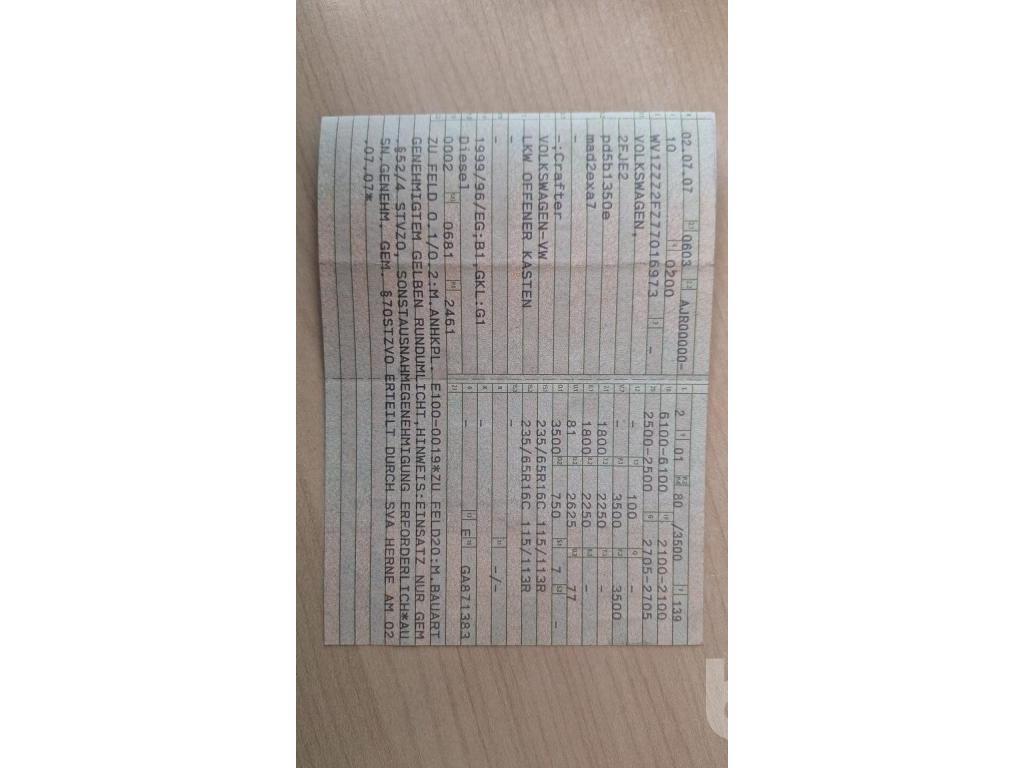 02.07.07 0603 AJR00000-
10 0200
WV1ZZZ2FZ77016973 -
VOLKSWAGEN,
2FJE2
pd5b1350e
mad2exa7
-
-;Crafter
VOLKSWAGEN-VW
LKW OFFENER KASTEN
-
-
1999/96/EG;B1,GKL:G1
Diesel
0002 0681 2461
2 01 80 /3500 139
6100-6100 2100-2100
2500-2500 2705-2705
- 100 -
- 3500 3500
1800 2250 -
1800 2250 -
81 2625 77
3500 750 7 -
235/65R16C 115/113R
235/65R16C 115/113R
-
- -/-
-
- E GA871383
ZU FELD 0.1/0.2:M.ANHKPL. E100-0019*ZU FELD20:M.BAUART
GENEHMIGTEM GELBEN RUNDUMLICHT,HINWEIS:EINSATZ NUR GEM
.§52/4 STVZO, SONSTAUSNAHMEGENEHMIGUNG ERFORDERLICH*AU
SN.GENEHM. GEM. §70STZVO ERTEILT DURCH SVA HERNE AM 02
.07.07*